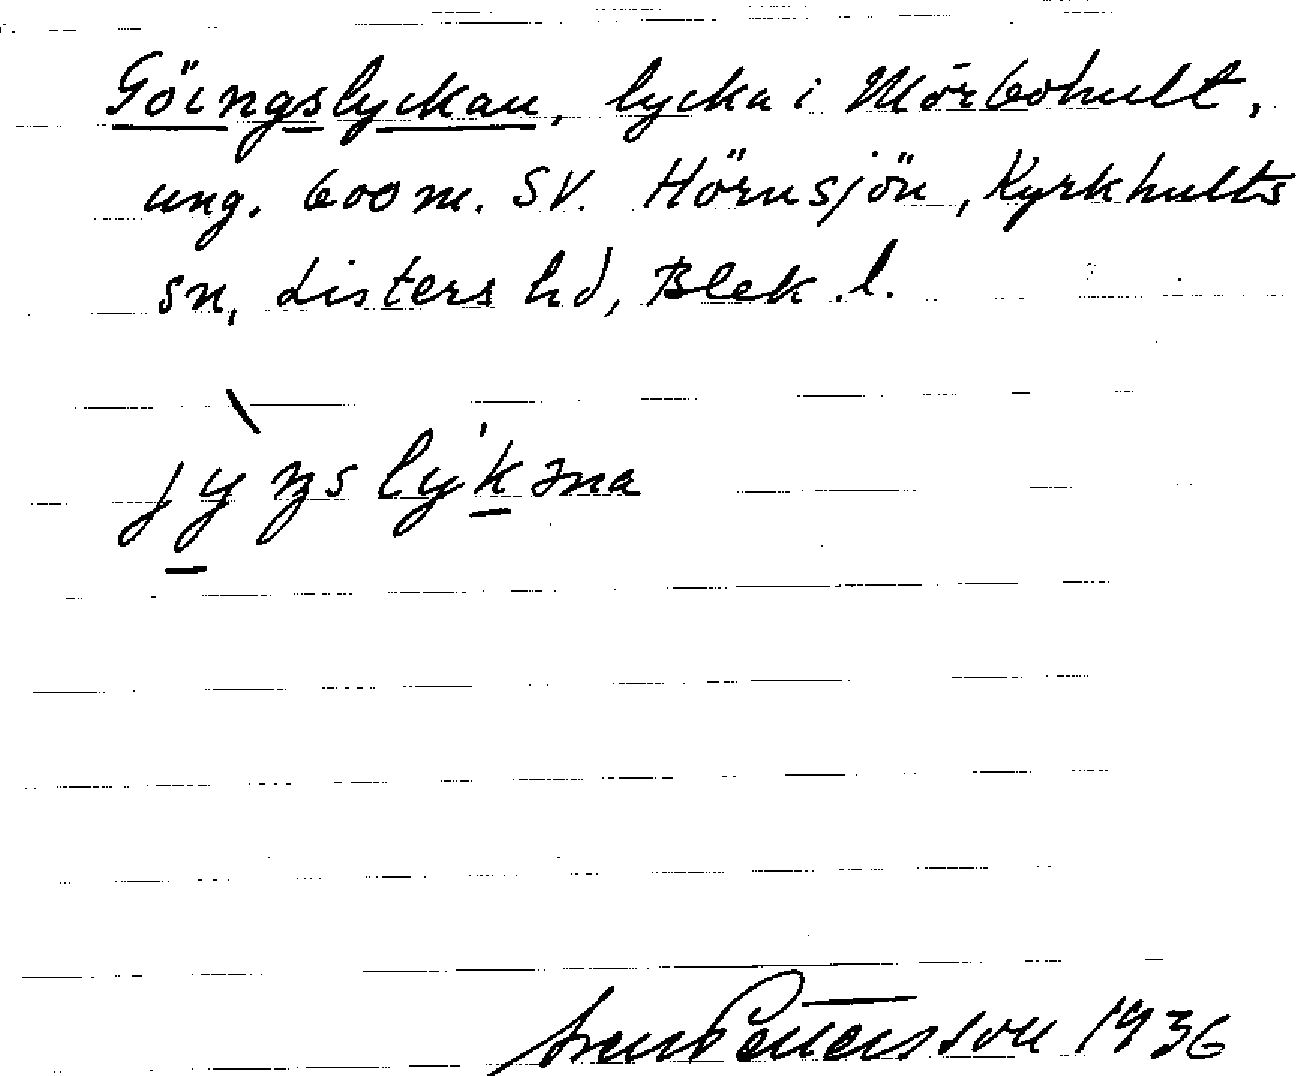 Göingslyckan, lycka i Mörbohult,
ung. 600 m. SV. Hörnsjön, Kyrkhults
sn, Listers hd, Blek. l.
jỳŋslýkəna
Sven Pettersson 1936